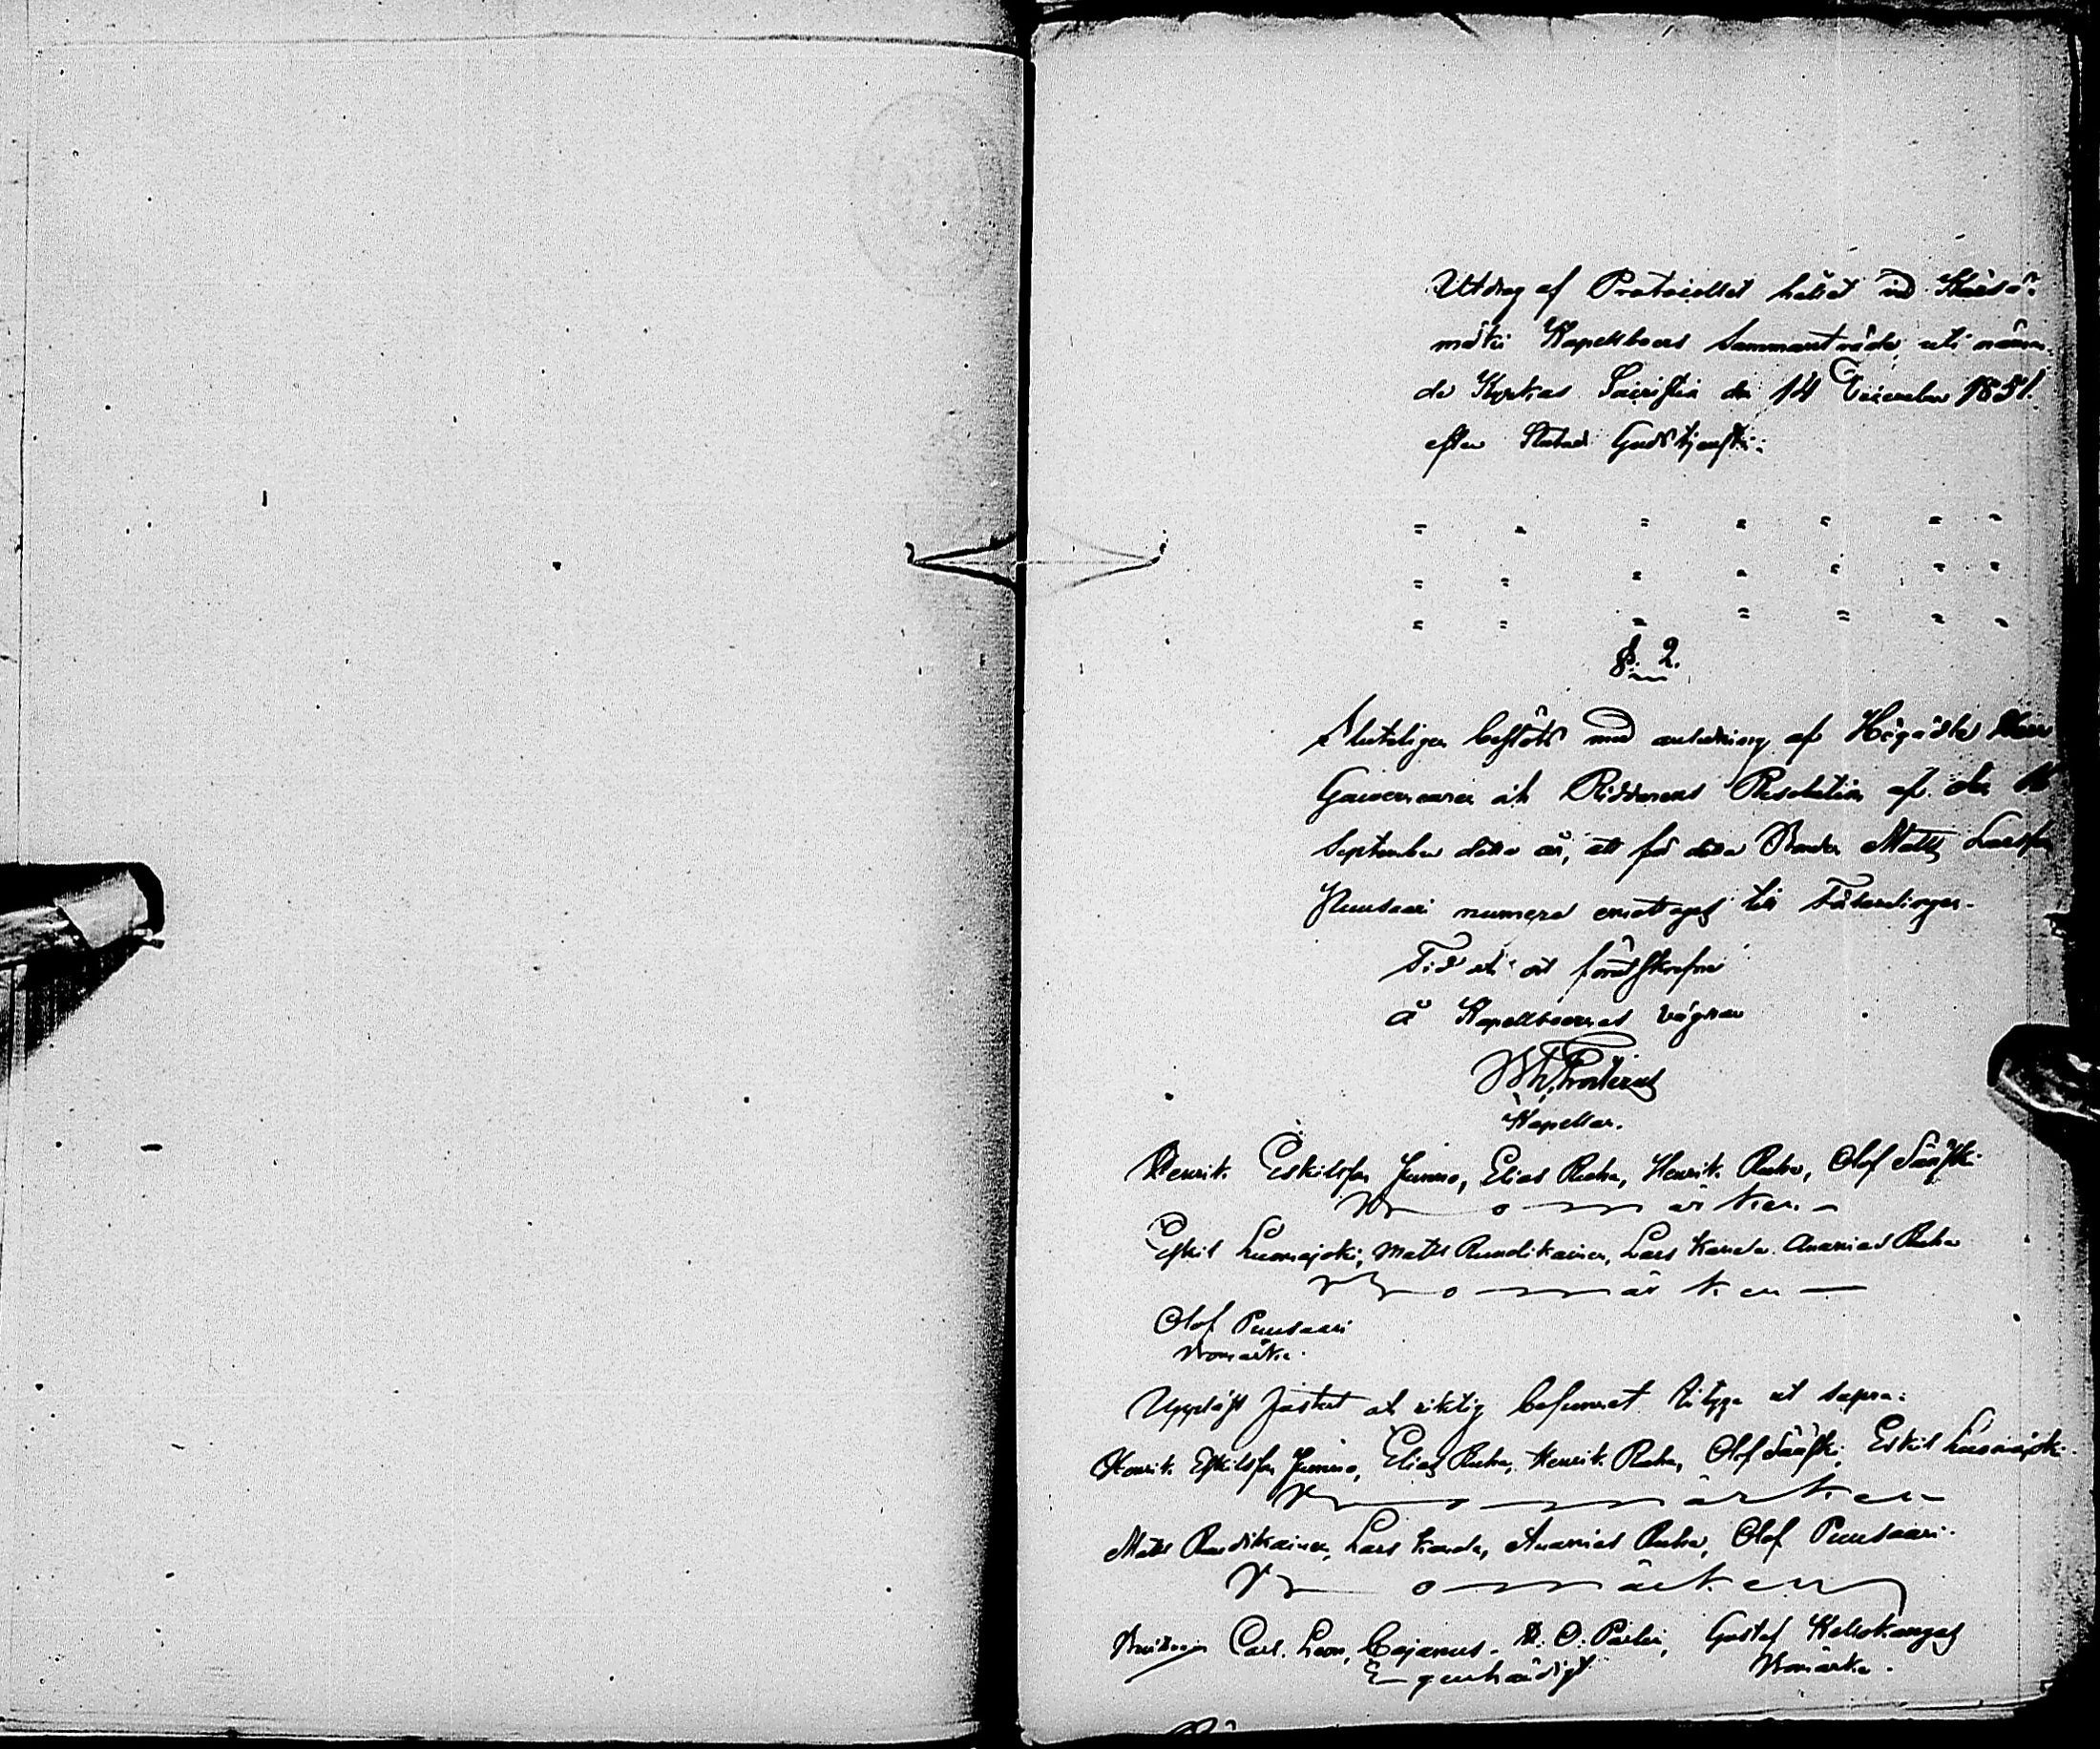 Utdrag af Protocollet hållet vid Kärsä-
mäki Kapellboers Sammanträde uti nämn-
de Kyrkas Sacristia den 14 December 1851.
efter slutad Gudstjenst:
" " " " " " "
" " " " " " "
" " " " " " "
§. 2.
Sluteligen beslöts med anledning af Högädle Herr
Gouverneuren och Riddarens Resolution af den 16
September detta år, att för detta Bonden Matts Larsson
numera emottages till
Tid och ort förutskrefne
å Kapellboernes vägnar
Kapellan.
Henrik Eskilsson Junno, Elias Ruha, Henrik Ruha, Olof Sääski
Bomärken
Eskil Luomajoki, Matts Rundikainen, Lars Karda Ananias Ruha
Bomärken
Olof Puusaari
Bomärke.
Uppläst justeradt och riktig befunnet betyga ut supra:
Henrik Eskilsson Junno, Elias Ruha, Henrik Ruha, Olof Sääski, Eskil Luomajoki
Bomärken
Matts Rundikainen, Lars Karda, Ananias Ruha, Olof Puusaari.
Bomärken
Carl Leon. Cajanus. Gustaf Kellokangas
Egenhändigt Bomärke.